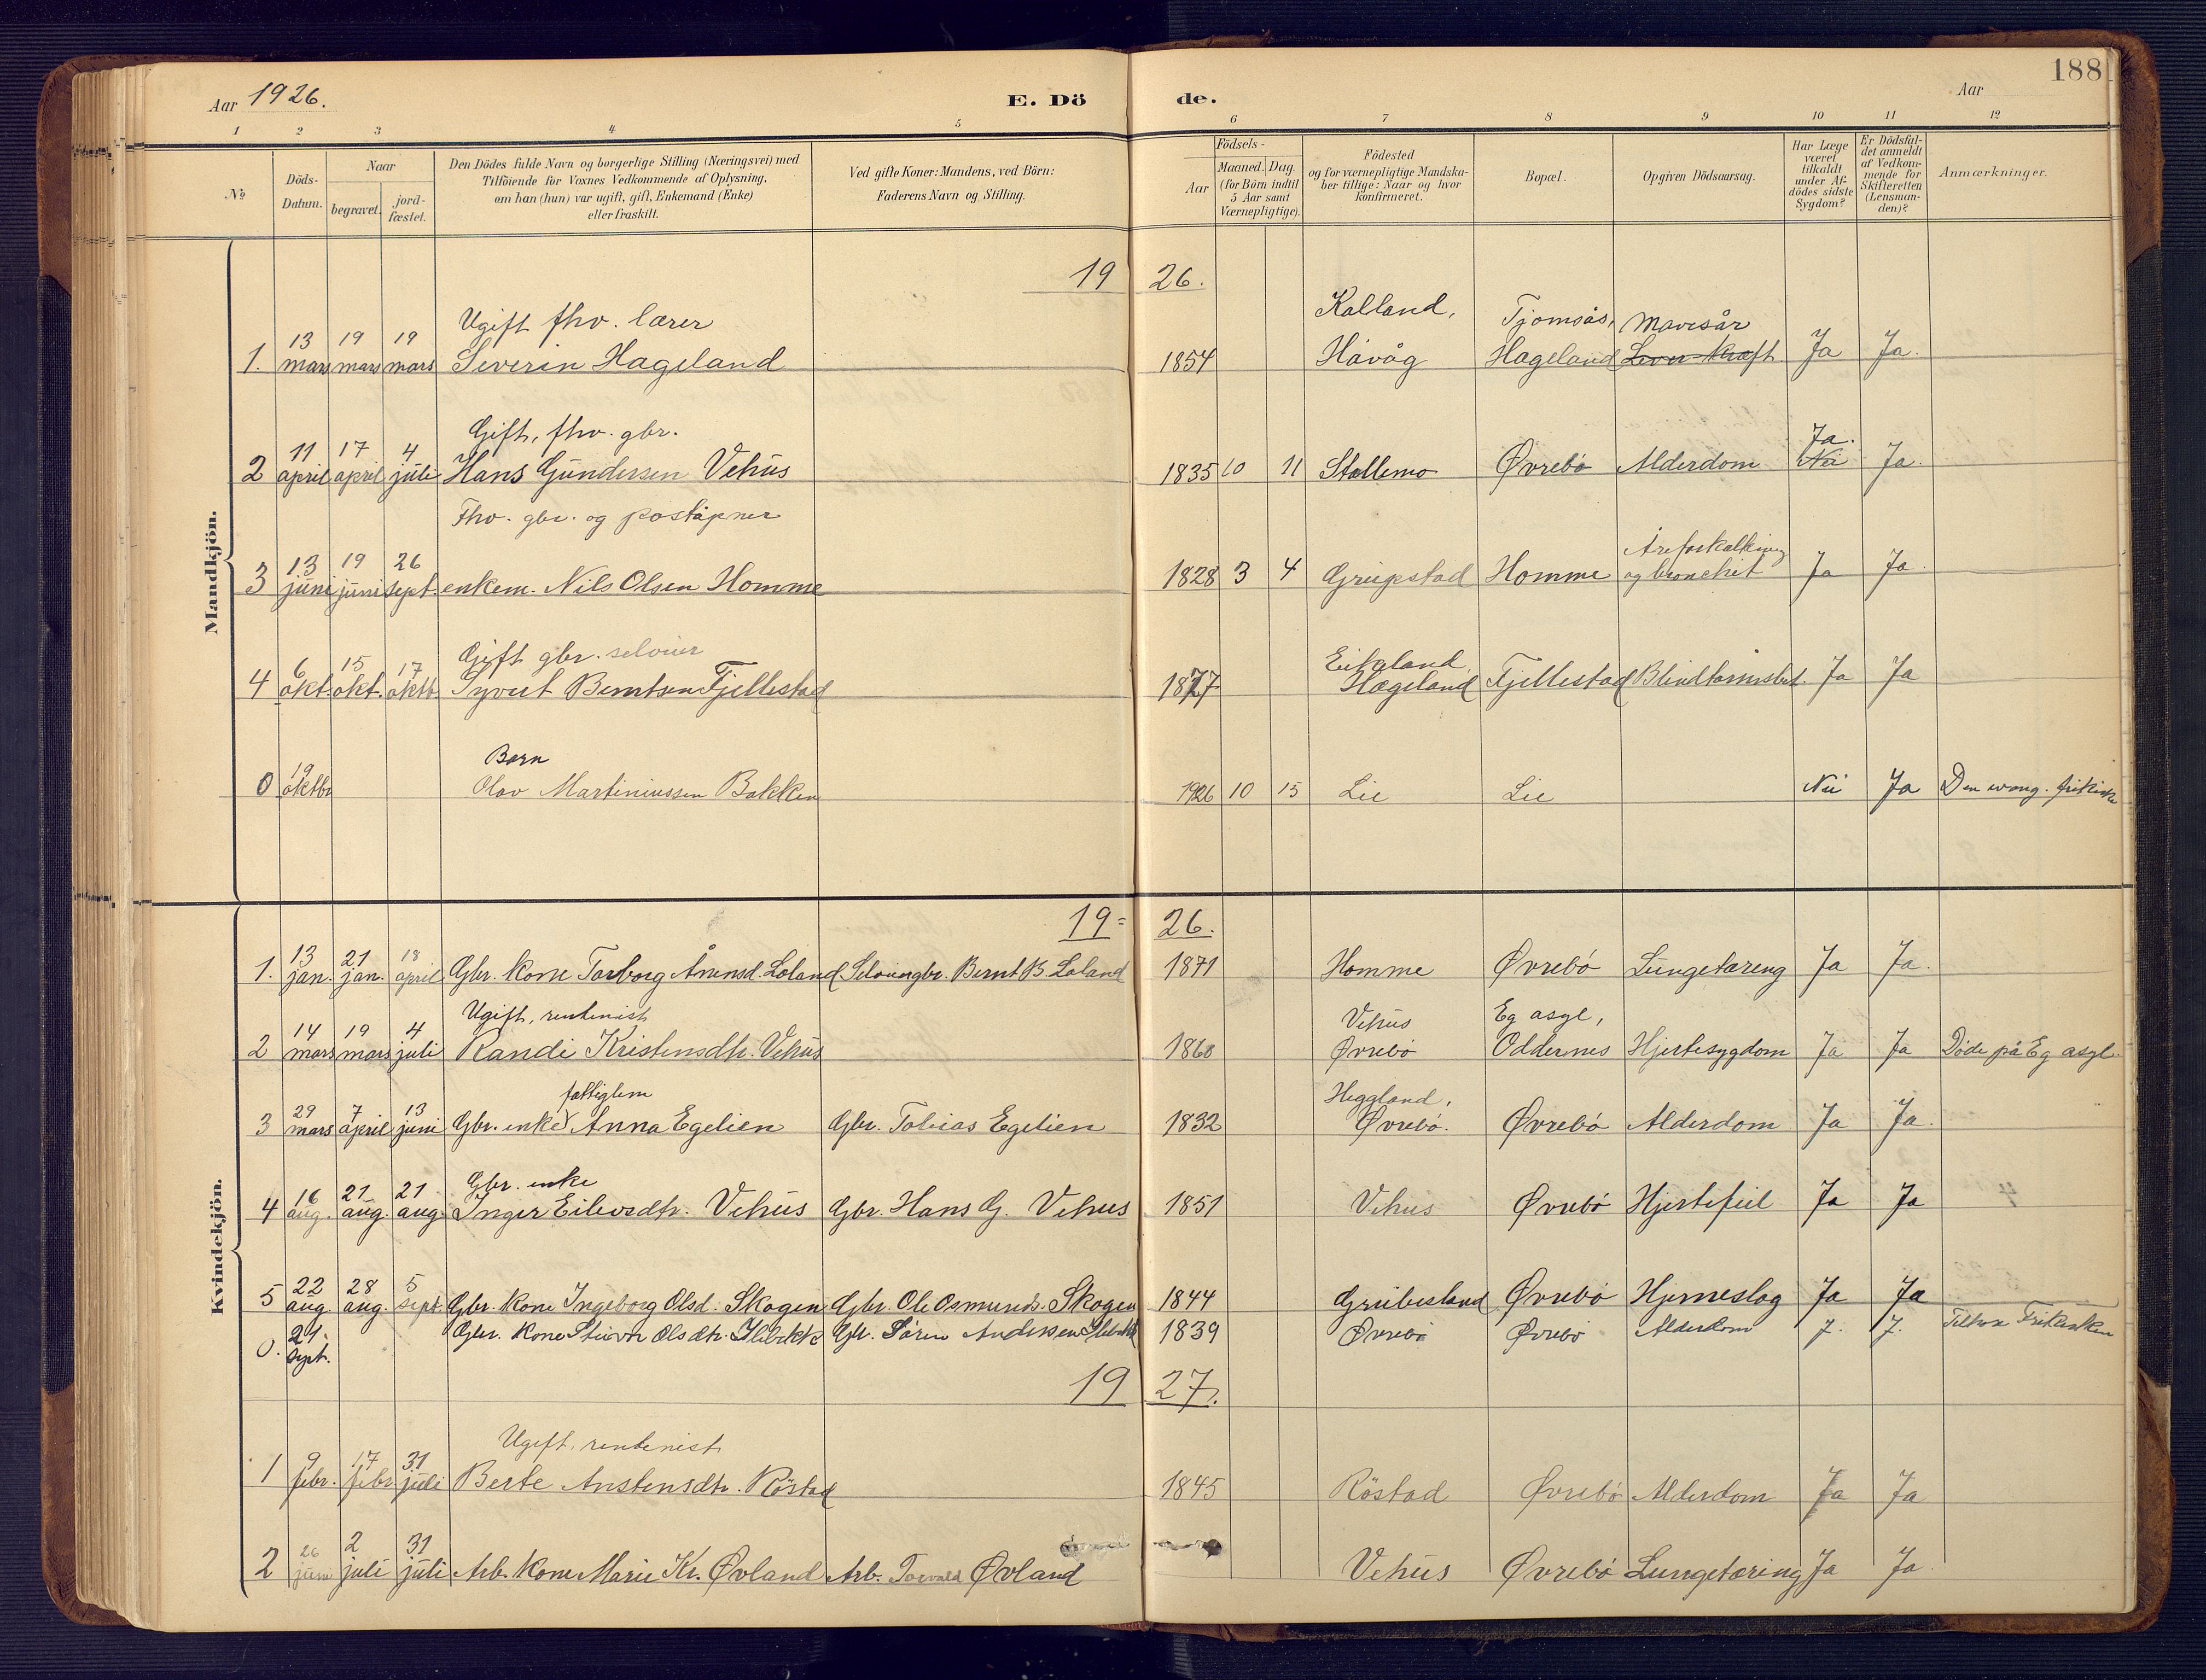 Aar 1926.
E. Dö de.
Aar
188
1 2 3 4 5 6 7 8 9 10 11 12
No
Döds-
Datum.
Naar
begravet.
jord-
fæstet.
Den Dödes fulde Navn og borgerlige Stilling (Næringsvei) med
Tilföiende for Voxnes Vedkommende af Oplysning,
om han (hun) var ugift, gift, Enkemand (Enke)
eller fraskilt.
Ved gifte Koner: Mandens, ved Börn:
Faderens Navn og Stilling.
Födsels-
Aar
Maaned. Dag.
(for Börn indtil
5 Aar samt
Værnepligtige).
Födested
og for værnepligtige Mandska-
ber tillige: Naar og hvor
konfirmeret.
Bopæl.
Opgiven Dödsaarsag.
Har Læge
været
tilkaldt
under Af-
dödes sidste
Sygdom?
Er Dödsfal-
det anmeldt
af Vedkom-
mende for
Skifteretten
(Lensman-
den)?
Anmærkninger.
Mandkjön.
19 26.
Ugift fhv. lærer Kalland, Tjomsås, Mavesår
13 19 19
1. mars mars mars Severin Hageland 1854 Håvåg Hageland Lever kræft Ja Ja.
Gift, fhv. gbr. Ja.
11 17 4
2 april april juli Hans Gundersen Vehus 1835 10 11 Stallemo Øvrebö Alderdom Nei Ja.
Fhv. gbr. og poståpner
13 19 26 Åreforkalkning
3 juni juni sept. enkem. Nils Olsen Homme 1828 3 4 Grupstad Homme og bronchit Ja Ja.
Gift gbr. selveier Eikeland,
6 15 17
4 okt. okt. oktb. Syvert Berntsen Fjellestad 1877 Hægeland Fjellestad Blindtarmsbet. Ja Ja
Barn
19
0 oktbr Olav Martiniussen Bakken 1926 10 15 Lie Lie Nei Ja Den evang. frikirke
Kvindekjön.
19= 26.
13 21 18
1. jan. jan. april Gbr. kone Torborg Ånensd. Loland Selveiergbr. Bernt B. Loland 1871 Homme Øvrebö Lungetæring Ja Ja.
Ugift, rentenist Vehus Eg asyl,
14 19 4
2 mars mars juli Randi Kristensdtr. Vehus 1860 Øvrebö Oddernes Hjertesygdom Ja Ja Döde på Eg asyl.
fattiglem Heggland,
29 7 13
3 mars april juni Gbr. enke Anna Egelien Gbr. Tobias Egelien 1832 Øvrebö. Øvrebö Alderdom Ja Ja.
Gbr. enke
16 21 21
4 aug. aug. aug. Inger Eilevsdtr. Vehus Gbr. Hans G. Vehus 1851 Vehus Øvrebö Hjertefeil Ja Ja
22 28 5
5 aug. aug. sept. Gbr. kone Ingeborg Olsd. Skogen Gbr. Ole Osmunds. Skogen 1844 Grubesland Øvrebö Hjerneslag Ja Ja
0. 21. sept. Gbr. kone Olsdtr. Gbr. Sören Andersen 1839 Øvrebö Øvrebö Alderdom J. J. Frikirken
19 27.
Ugift, rentenist
9 17 31
1 febr. febr. juli Berte Anstensdtr. Röstad 1845 Röstad Øvrebö Alderdom Ja Ja
26 2 31
2 juni juli juli Arb. kone Marie Kr. Øvland Arb. Torvald Øvland Vehus Øvrebö Lungetæring Ja Ja.